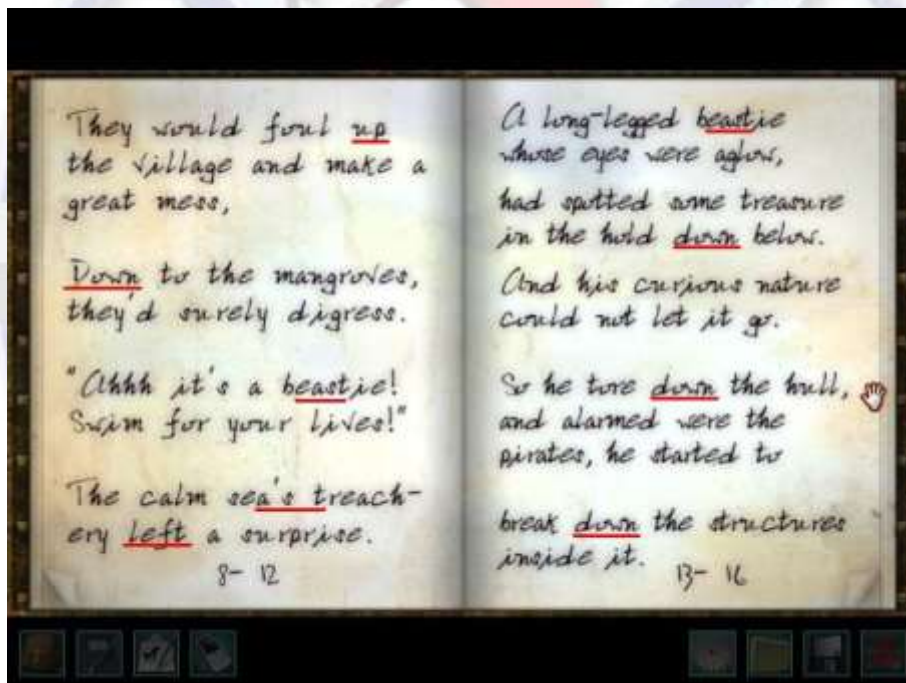 They would foul up
the village and make a
great mess,
Down to the mangroves,
they'd surely digress.
"Ahhh it's a beastie!
Swim for your lives!"
The calm sea's treach-
ery left a surprise.
8- 12
A long-legged beastie
whose eyes were aglow,
had spotted some treasure
in the hold down below.
And his curious nature
could not let it go.
So he tore down the hull,
and alarmed were the
pirates, he started to
break down the structures
inside it.
13- 16